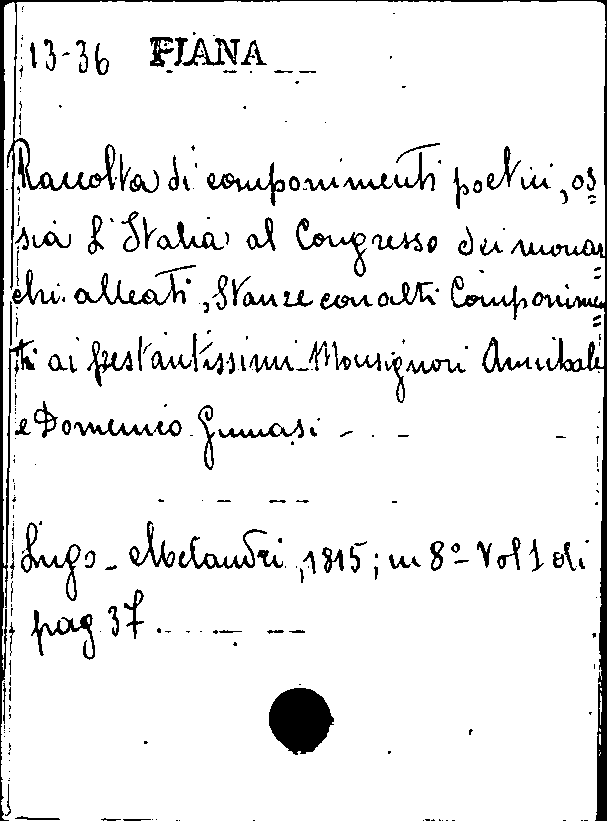 13-36 PIANA
Raccolta di componimenti poetici, os=
sia L'Italia al Congresso dei monar=
chi alleati, Stanze con alti Componimen=
ti ai prestantissimi Monsignori Annibale
e Domenico Ginnasi
Lugo - Melandri, 1815; in 8º - Vol 1 di
pag 37.